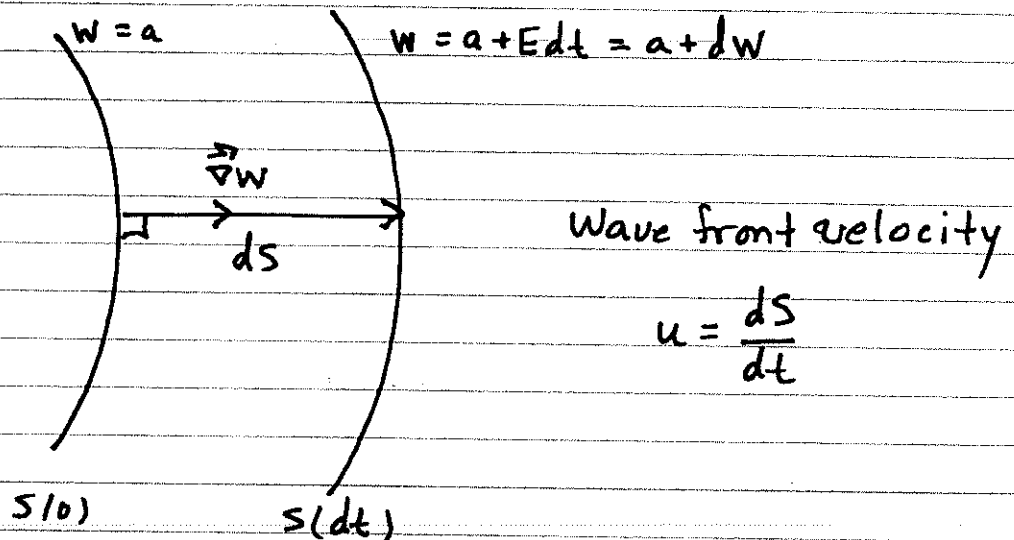 W = a
W = a + E dt = a + dW
∇⃗W
ds
Wave front velocity
u = ds/dt
S(0)
S(dt)